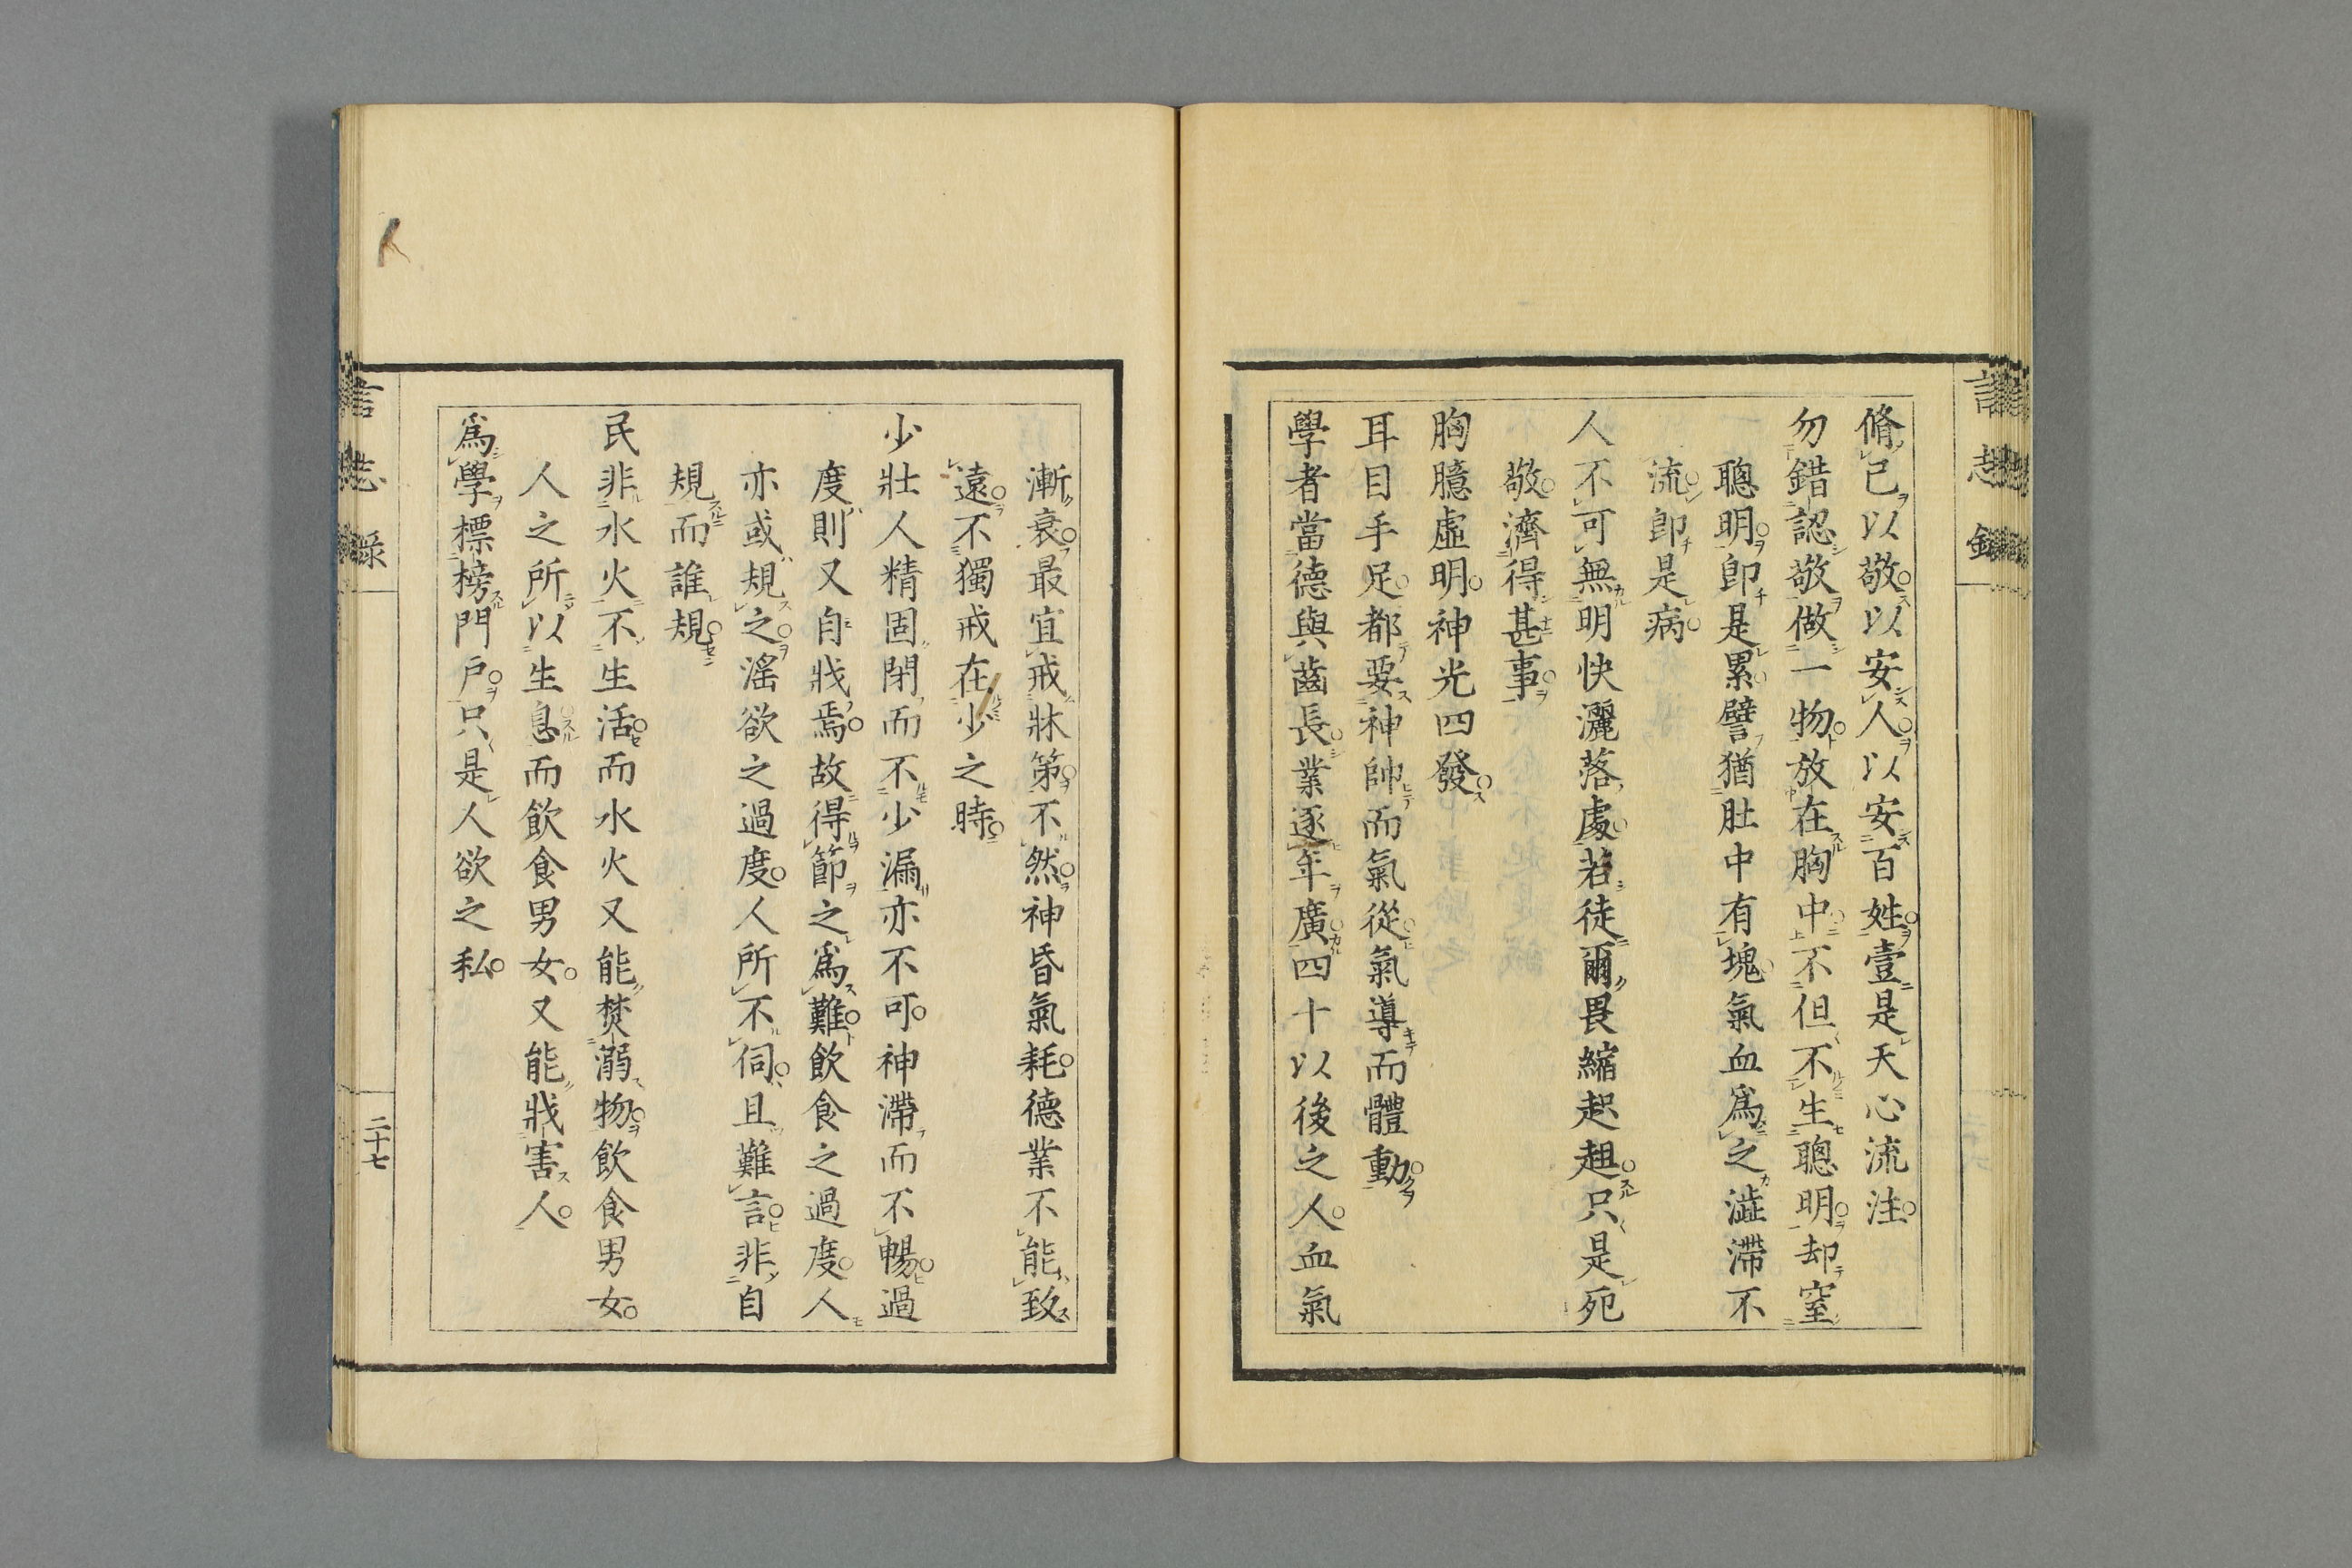 言志錄
脩己以敬以安人以安百姓壹是天心流注
勿錯認敬做一物放在胸中不但不生聰明却窒
聰明卽是累譬猶肚中有塊氣血爲之澁滯不
流卽是病
人不可無明快灑落處若徒爾畏縮趑趄只是死
敬濟得甚事
胸臆虛明神光四發
耳目手足都要神帥而氣從氣導而體動
學者當德與齒長業逐年廣四十以後之人血氣
漸衰最宜戒牀笫不然神昏氣耗德業不能致
遠不獨戒在少之時
少壯人精固閉而不少漏亦不可神滯而不暢過
度則又自戕焉故得節之爲難飮食之過度人
亦或規之滛欲之過度人所不伺且難言非自
規而誰規
民非水火不生活而水火又能焚溺物飮食男女
人之所以生息而飮食男女又能戕害人
爲學標榜門戶只是人欲之私
言志錄
二十七